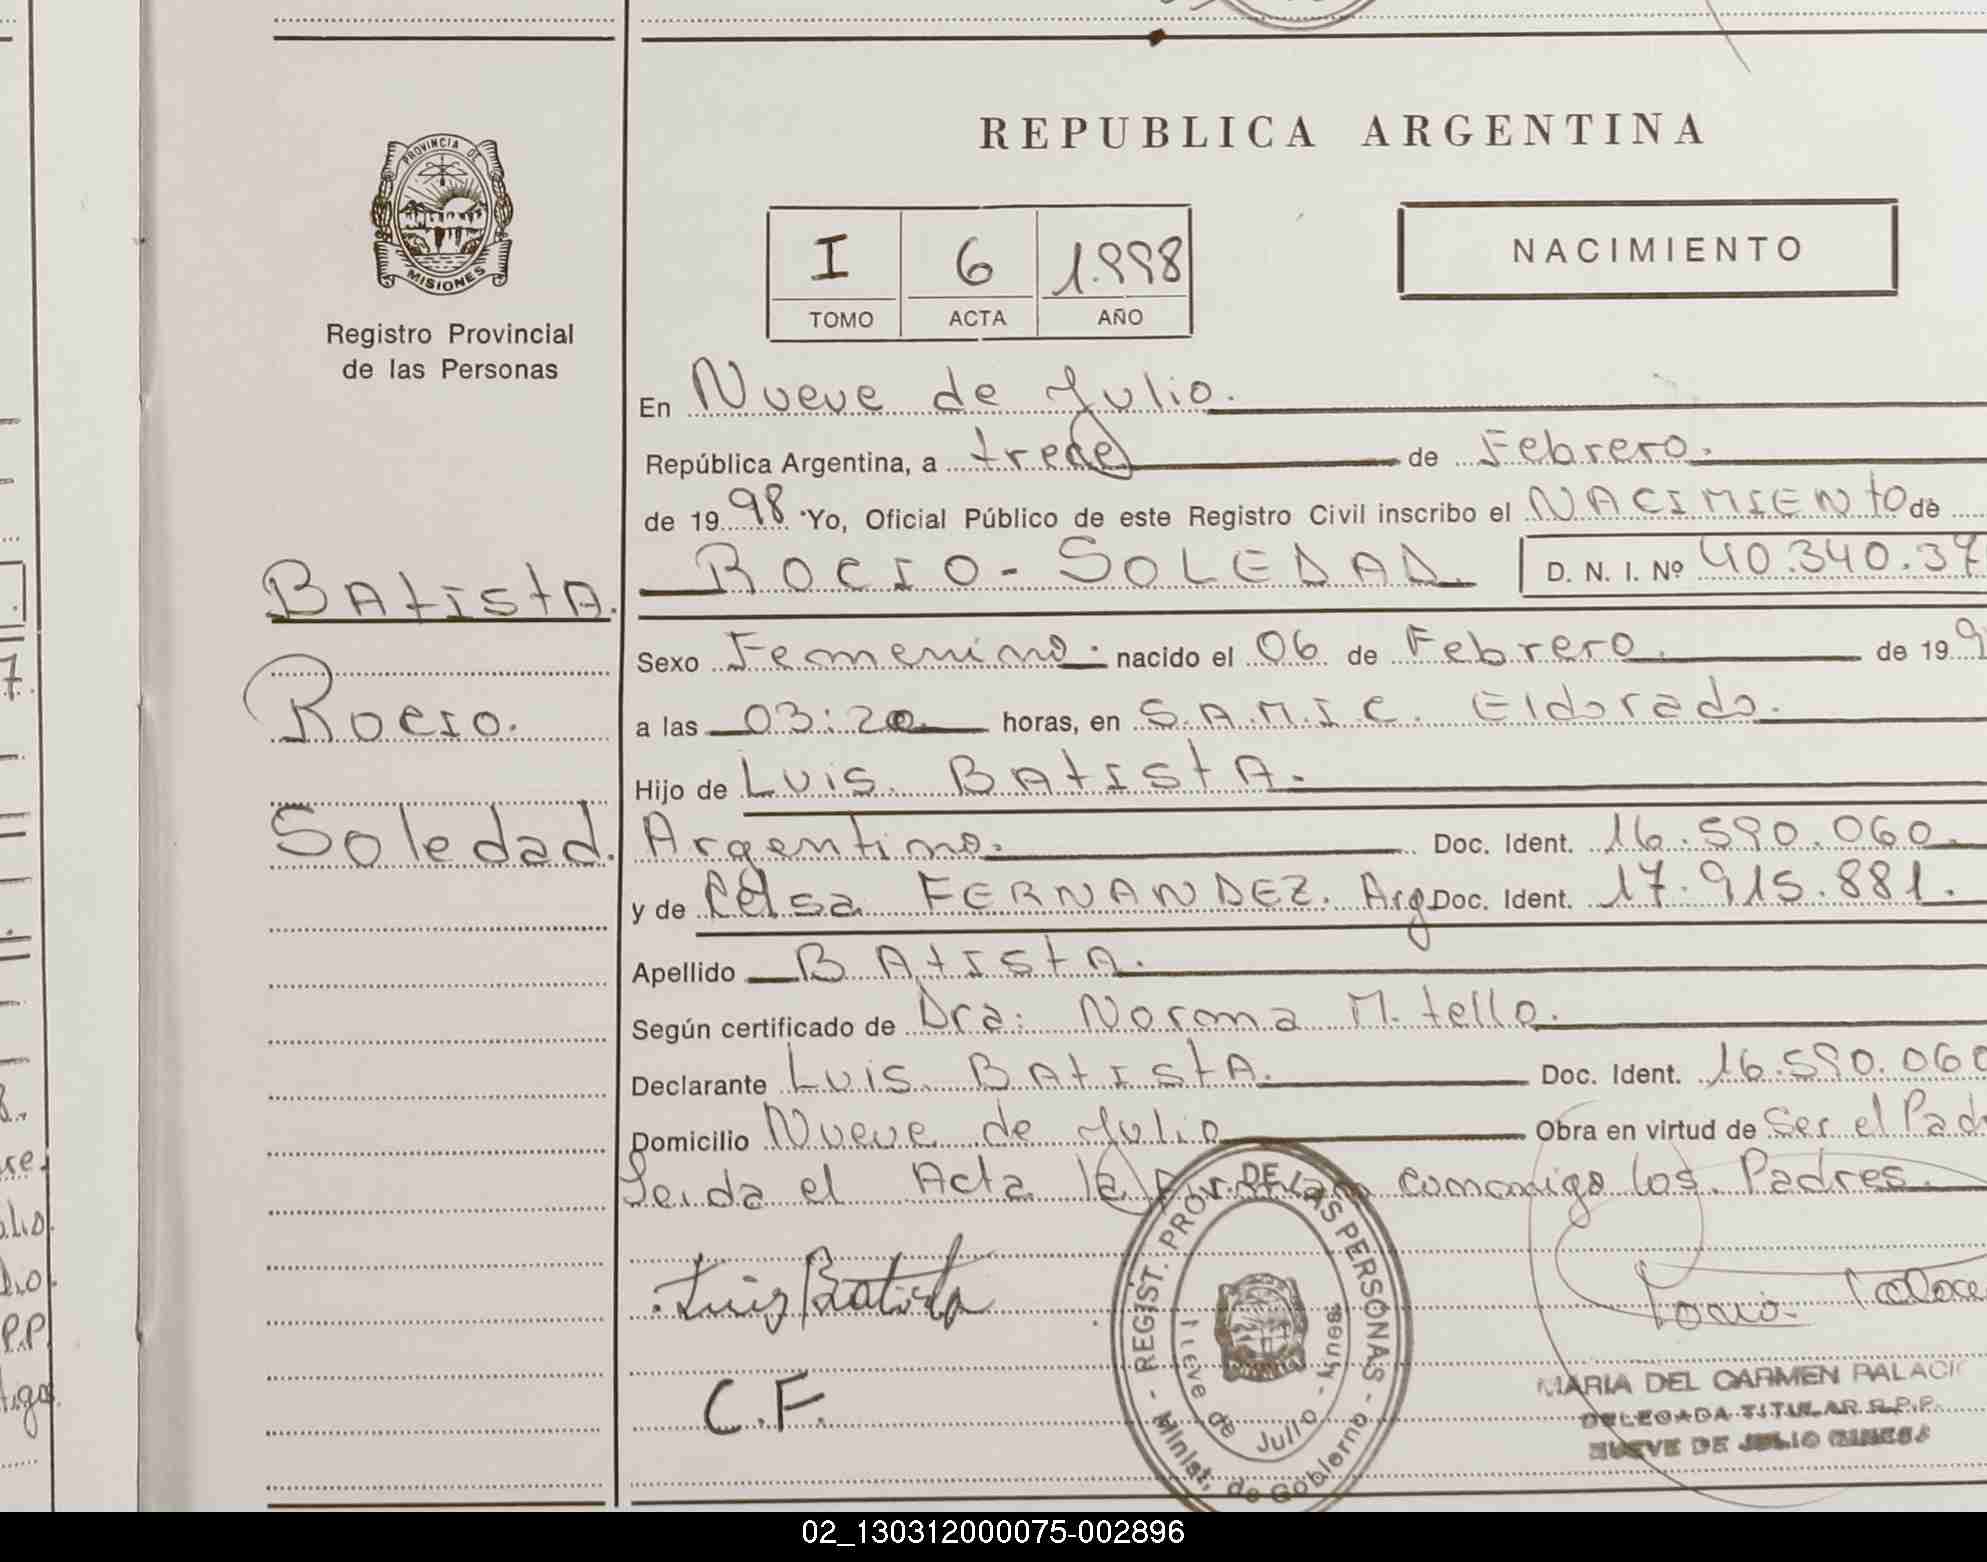 PROVINCIA DE
MISIONES
Registro Provincial
de las Personas
Batista.
Rocio.
Soledad.
REPUBLICA ARGENTINA
I 6 1.998
TOMO ACTA AÑO
NACIMIENTO
En Nueve de Julio.
República Argentina, a trece de Febrero.
de 1998 Yo, Oficial Público de este Registro Civil inscribo el NACIMIENTO de
ROCIO - SOLEDAD. D. N. I. Nº 40.340.37
Sexo Femenino. nacido el 06 de Febrero. de 199
a las 03:20 horas, en S.A.M.I.C. Eldorado.
Hijo de Luis Batista.
Argentino. Doc. Ident. 16.590.060.
y de Celsa FERNANDEZ. Arg Doc. Ident. 17.915.881.
Apellido Batista.
Según certificado de Dra: Norma M. tello.
Declarante Luis Batista. Doc. Ident. 16.590.060
Domicilio Nueve de Julio Obra en virtud de Ser el Pad
Leida el Acta la firman conmigo los Padres.
Luis Batista
C.F.
REGIST. PROV. DE LAS PERSONAS - Minist. de Gobierno -
Nueve de Julio - Mnes.
MARIA DEL CARMEN PALACI
DELEGADA TITULAR R.P.P.
NUEVE DE JULIO
02_130312000075-002896